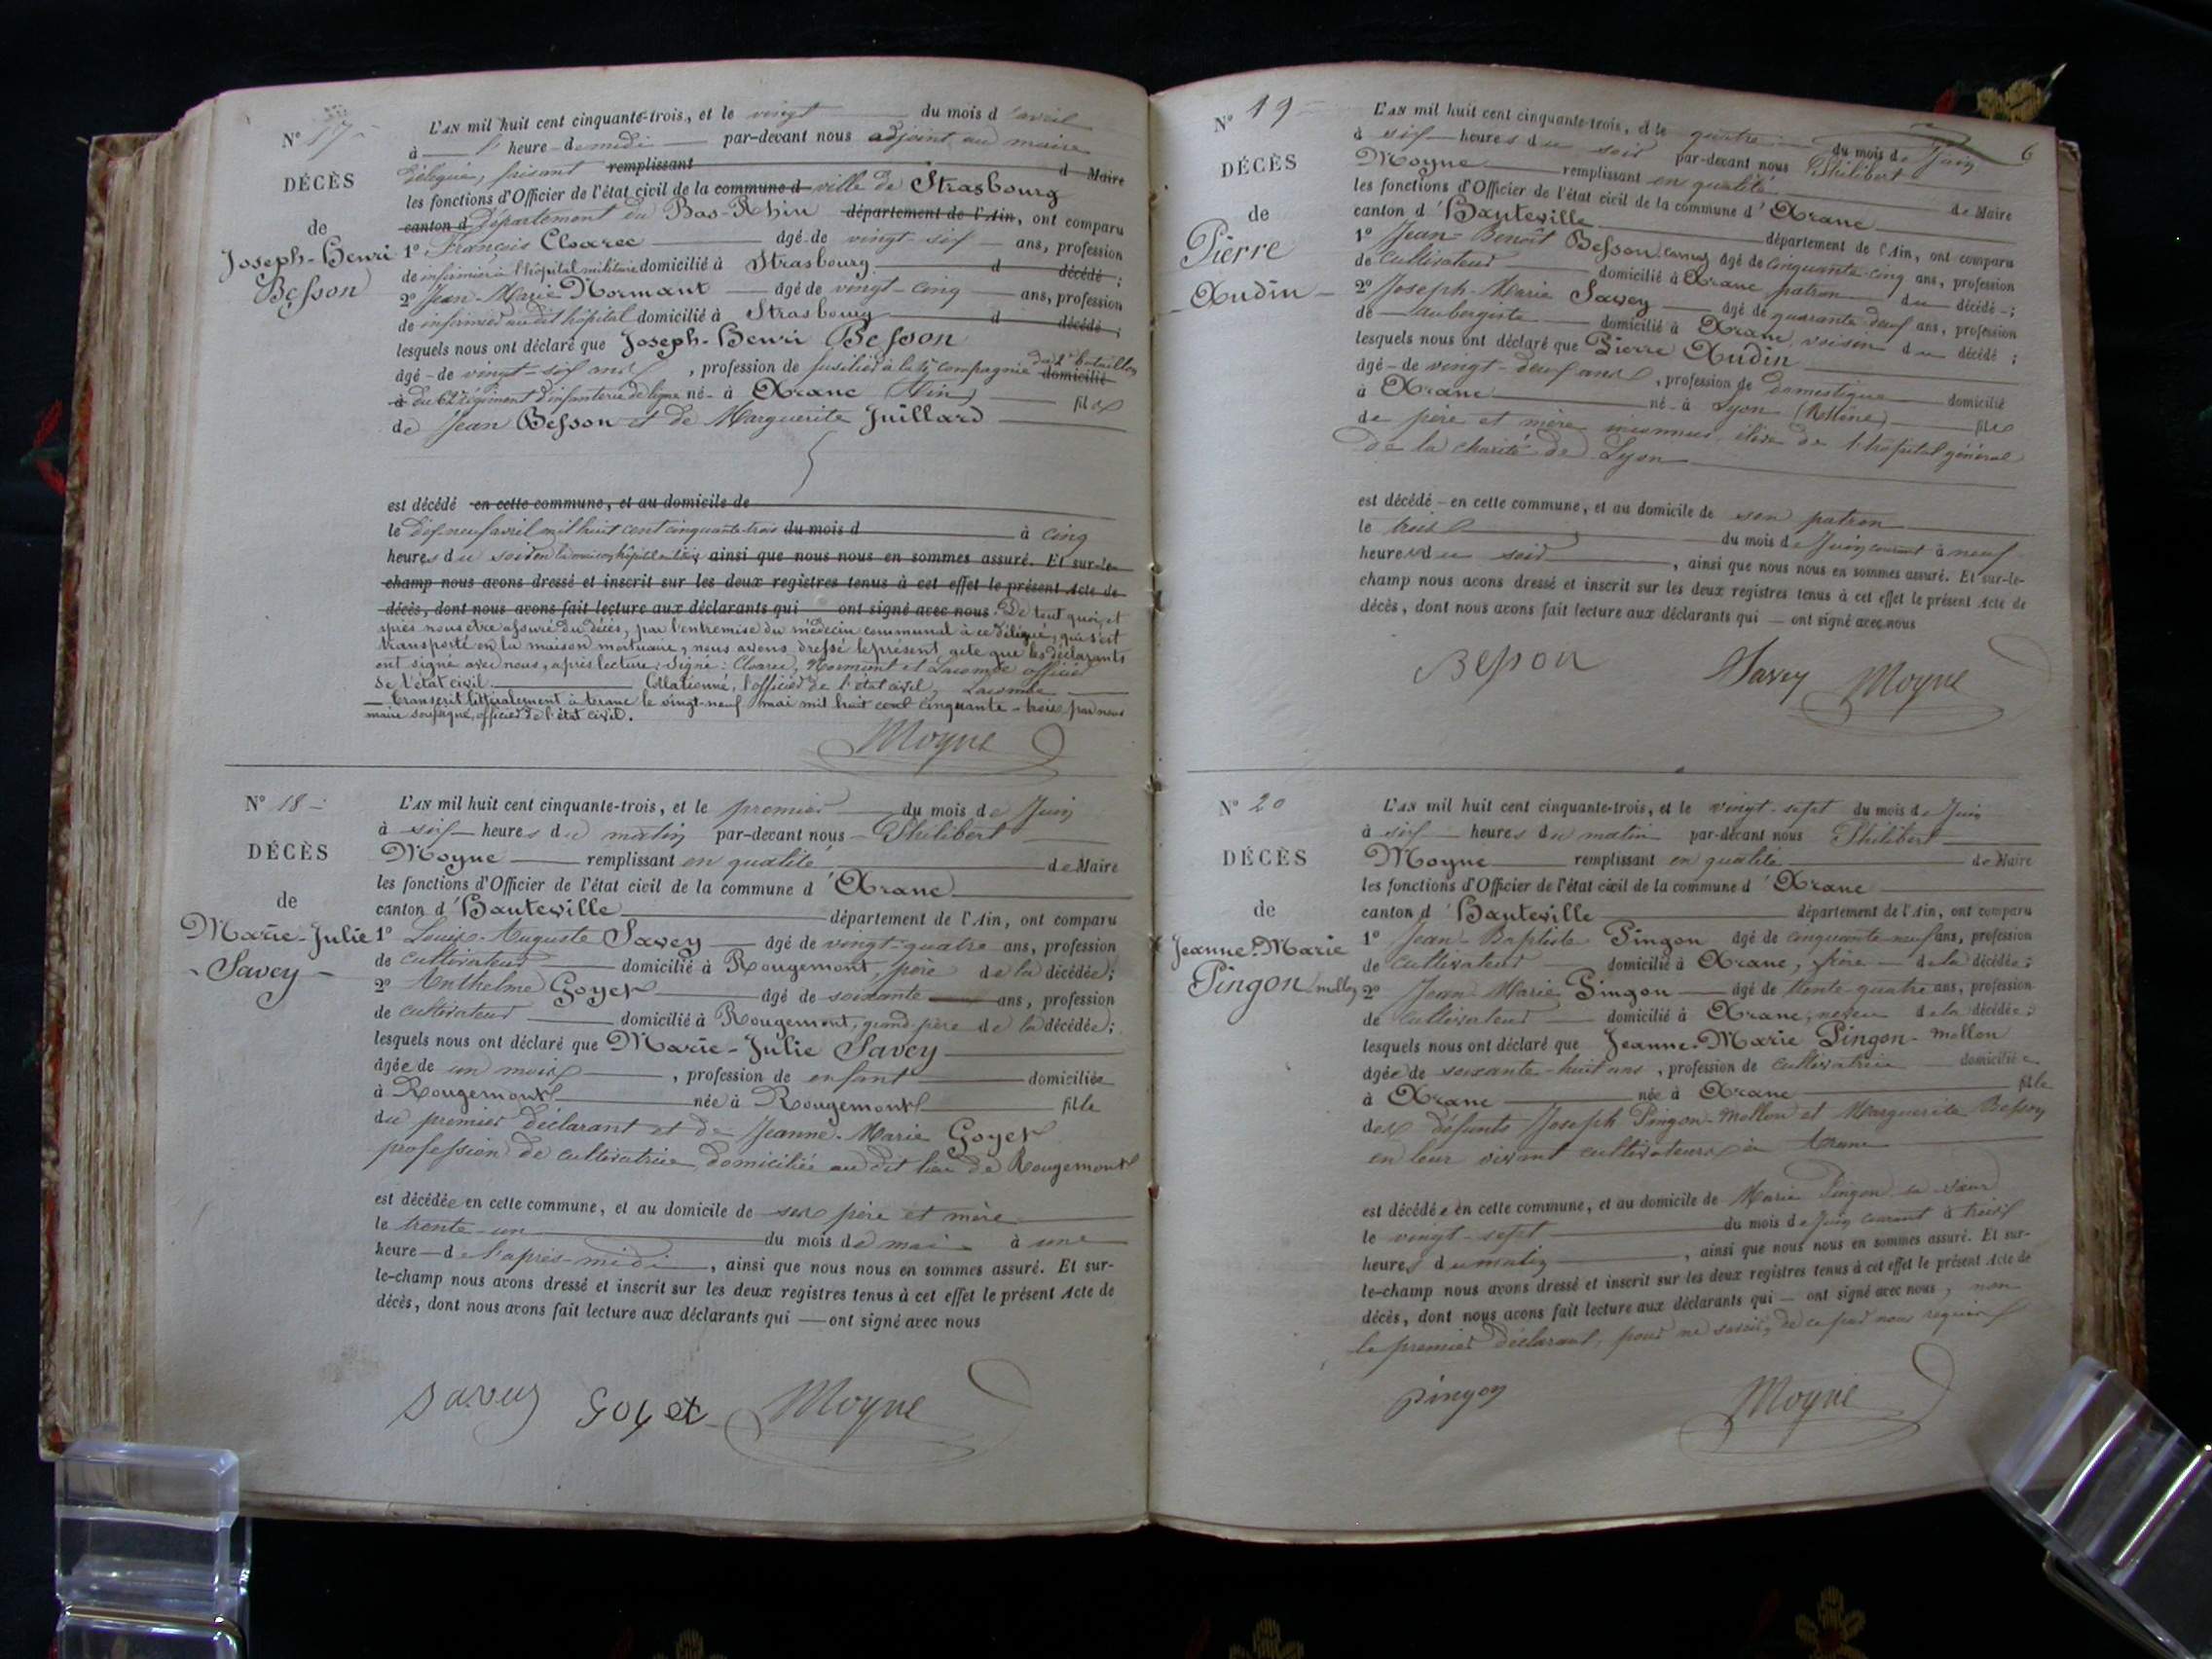 N° 17
DÉCÈS
de
Joseph-Henri
Besson
L'AN mil huit cent cinquante-trois, et le vingt du mois d'avril
à l'heure de midi par-devant nous adjoint au maire
délégué, faisant remplissant d Maire
les fonctions d'Officier de l'état civil de la commune d ville de Strasbourg
canton d département du Bas-Rhin département de l'Ain, ont comparu
1° François Cloarec âgé de vingt-six ans, profession
de infirmier à l'hôpital militaire domicilié à Strasbourg d décédé ;
2° Jean-Marie Normant âgé de vingt-cinq ans, profession
de infirmier au dit hôpital domicilié à Strasbourg d décédé ;
lesquels nous ont déclaré que Joseph-Henri Besson
âgé de vingt-six ans, profession de fusilier à la compagnie du bataillon domicilié
à du 62e régiment d'infanterie de ligne né à Aranc (Ain) fils
de Jean Besson et de Marguerite Juillard
est décédé en cette commune, et au domicile de
le dix-neuf avril mil huit cent cinquante-trois du mois d à cinq
heures du soir en la maison hôpital ainsi que nous nous en sommes assuré. Et sur-le-
champ nous avons dressé et inscrit sur les deux registres tenus à cet effet le présent Acte de
décès, dont nous avons fait lecture aux déclarants qui ont signé avec nous. De tout quoi, et
après nous être assuré du décès, par l'entremise du médecin communal à ce délégué, qui s'est
transporté en la maison mortuaire, nous avons dressé le présent acte que les déclarants
ont signé avec nous, après lecture. Signé : Cloarec, Normant et Lacombe officier
de l'état civil. Collationné, l'officier de l'état civil, Lacombe
Transcrit littéralement à Aranc le vingt-neuf mai mil huit cent cinquante-trois par nous
maire soussigné, officier de l'état civil.
Moyne
N° 18
DÉCÈS
de
Marie-Julie
Savey
L'AN mil huit cent cinquante-trois, et le premier du mois de Juin
à six heures du matin par-devant nous Philibert
Moyne remplissant en qualité de Maire
les fonctions d'Officier de l'état civil de la commune d'Aranc
canton d'Hauteville département de l'Ain, ont comparu
1° Louis-Auguste Savey âgé de vingt-quatre ans, profession
de cultivateur domicilié à Rougemont, père de la décédée ;
2° Anthelme Goyet âgé de soixante ans, profession
de cultivateur domicilié à Rougemont, grand-père de la décédée ;
lesquels nous ont déclaré que Marie-Julie Savey
âgée de un mois, profession de enfant domiciliée
à Rougemont née à Rougemont fille
du premier déclarant et de Jeanne-Marie Goyet
profession de cultivatrice domiciliée au dit lieu de Rougemont
est décédée en cette commune, et au domicile de ses père et mère
le trente-un du mois de mai à une
heure de l'après-midi, ainsi que nous nous en sommes assuré. Et sur-
le-champ nous avons dressé et inscrit sur les deux registres tenus à cet effet le présent Acte de
décès, dont nous avons fait lecture aux déclarants qui ont signé avec nous
Savey Goyet Moyne
6
N° 19
DÉCÈS
de
Pierre
Audin
L'AN mil huit cent cinquante-trois, et le quatre du mois de Juin
à six heures du soir par-devant nous Philibert
Moyne remplissant en qualité de Maire
les fonctions d'Officier de l'état civil de la commune d'Aranc
canton d'Hauteville département de l'Ain, ont comparu
1° Jean-Benoît Besson âgé de cinquante-cinq ans, profession
de cultivateur domicilié à Aranc patron du décédé ;
2° Joseph-Marie Savey âgé de quarante-deux ans, profession
de aubergiste domicilié à Aranc, voisin du décédé ;
lesquels nous ont déclaré que Pierre Audin
âgé de vingt-deux ans, profession de Domestique domicilié
à Aranc né à Lyon (Rhône) fils
de père et mère inconnus, élève de l'hôpital général
de la charité de Lyon
est décédé en cette commune, et au domicile de son patron
le trois du mois de Juin courant à neuf
heures du soir, ainsi que nous nous en sommes assuré. Et sur-le-
champ nous avons dressé et inscrit sur les deux registres tenus à cet effet le présent Acte de
décès, dont nous avons fait lecture aux déclarants qui ont signé avec nous
Besson Savey Moyne
N° 20
DÉCÈS
de
Jeanne-Marie
Pingon mollon
L'AN mil huit cent cinquante-trois, et le vingt-sept du mois de Juin
à six heures du matin par-devant nous Philibert
Moyne remplissant en qualité de Maire
les fonctions d'Officier de l'état civil de la commune d'Aranc
canton d'Hauteville département de l'Ain, ont comparu
1° Jean-Baptiste Pingon âgé de cinquante-neuf ans, profession
de cultivateur domicilié à Aranc, frère de la décédée ;
2° Jean-Marie Pingon âgé de trente-quatre ans, profession
de cultivateur domicilié à Aranc, neveu de la décédée ;
lesquels nous ont déclaré que Jeanne-Marie Pingon-mollon
âgée de soixante-huit ans, profession de cultivatrice domiciliée
à Aranc née à Aranc fille
des défunts Joseph Pingon-Mollon et Marguerite Besson
en leur vivant cultivateurs à Aranc
est décédée en cette commune, et au domicile de Marie Pingon sa sœur
le vingt-sept du mois de Juin courant à trois
heures du matin, ainsi que nous nous en sommes assuré. Et sur-
le-champ nous avons dressé et inscrit sur les deux registres tenus à cet effet le présent Acte de
décès, dont nous avons fait lecture aux déclarants qui ont signé avec nous, non
le premier déclarant, pour ne savoir, de ce par nous requis
Pingon Moyne